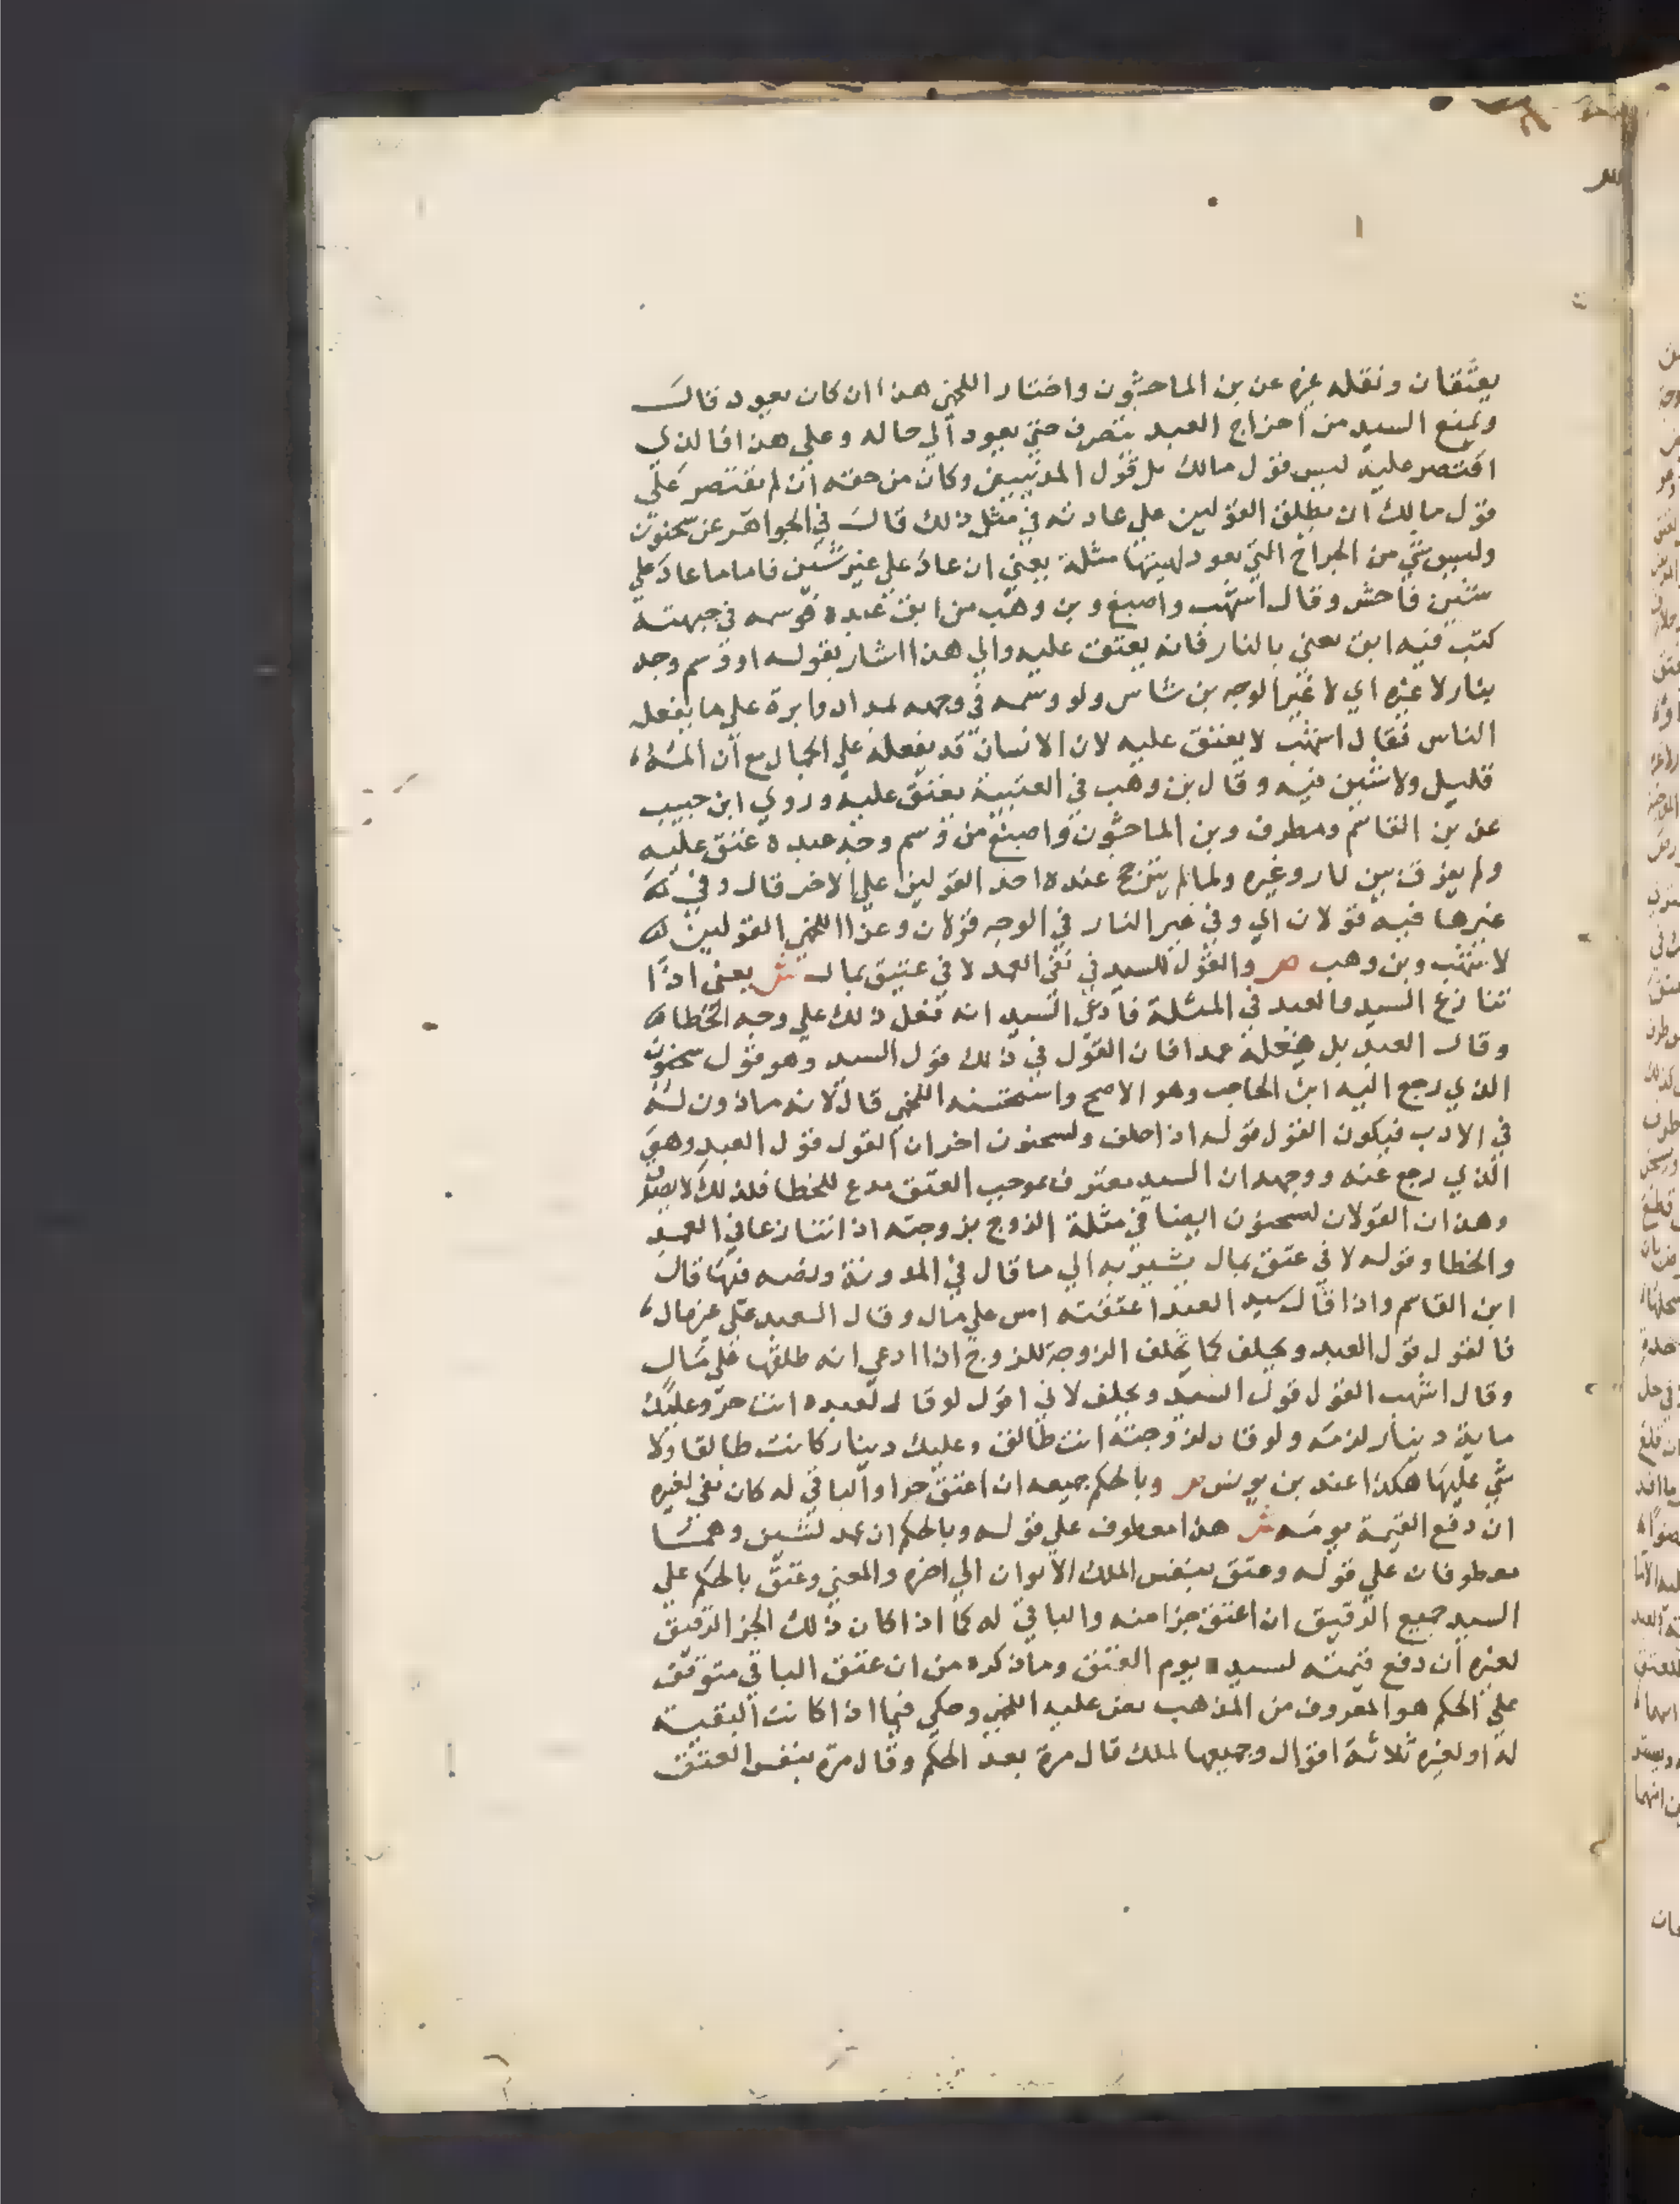 يعتقان ونقله غيره عن بن الماجشون واختار اللخمي هذا ان كان يعود قال
ويمنع السيد من اخراج العبد يتصرف حتي يعود الي حاله وعلي هذا فالذي
اقتصر عليه ليس قول مالك بل قول المدنيين وكان من حقه ان لا يقتصر علي
قول مالك ان يطلق القولين علي عادته في مثل ذلك قال في الجواهر عن سحنون
وليس شي من الجراح التي يعود لهيتها مثلة يعني ان عاد علي غير شين فاما ما عاد علي
شين فاحش وقال اشهب واصبغ وبن وهب من ابق عبده فوسمه في جبهته
كتب فيه ابق يعني بالنار فانه يعتق عليه والي هذا اشار بقوله او وسم وجه
بنار لا غيره اي لا غير الوجه بن شاس ولو وسمه في وجهه بمداد وابرة علي ما يفعله
الناس فقال اشهب لا يعتق عليه لان الانسان قد يفعله علي الجمال مع ان
قليل ولا شين فيه وقال بن وهب في العتبية يعتق عليه وروي ابن حبيب
عن بن القاسم ومطرف وبن الماجشون واصبغ من وسم وجه عبده عتق عليه
ولم يفرق بين نار وغيره ولما لم يترجح عنده احد القولين علي الاخر قال وفي
غيرها فيه قولان اي وفي غير النار في الوجه قولان وعزا اللخمي القولين
لاشهب وبن وهب ص والقول للسيد في نفي العمد لا في عتيق بمال ش يعني اذا
تنازع السيد والعبد في المثلة فادعي السيد انه فعل ذلك علي وجه الخطا
وقال العبد بل فعله عمدا فان القول في ذلك قول السيد وهو قول سحنون
الذي رجع اليه ابن الحاجب وهو الاصح واستحسنه اللخمي قال لانه ماذون له
في الادب فيكون القول قوله اذا حلف ولسحنون اخر ان القول قول العبد وهي
الذي رجع عنه ووجهه ان السيد معترف بموجب العتق مدع للخطا فلذلك لا يصدق
وهذان القولان لسحنون ايضا في مثلة الزوج بزوجته اذا تنازعا في العمد
والخطا وقوله لا في عتق بمال يشير به الي ما قال في المدونة ونصه فيها قال
ابن القاسم واذا قال سيد العبد اعتقته امس علي مال وقال العبد علي غير مال
فالقول قول العبد ويحلف كما تحلف الزوجة للزوج اذا ادعي انه طلقها علي مال
وقال اشهب القول قول السيد ويحلف لاني اقول لو قال لعبده انت حر وعليك
ماية دينار لزمته ولو قال لزوجته انت طالق وعليك دينار كانت طالقا ولا
شي عليها هكذا عند بن يونس ص وبالحكم جميعه ان اعتق جزا والباقي له كان بقي لغيره
ان دفع القيمة يومه ش هذا معطوف علي قوله وبالحكم ان عمد لشين وهما
معطوفان علي قوله وعتق بنفس الملك الابوان الي اخره والمعني وعتق بالحكم علي
السيد جميع الرقيق ان اعتق جزا منه والباقي له كما اذا كان ذلك الجز الرقيق
لغيره ان دفع قيمته لسيده يوم العتق وما ذكره من ان عتق الباقي متوقف
علي الحكم هو المعروف من المذهب نص عليه اللخمي وحكي فيما اذا كانت البقية
له او لغيره ثلاثة اقوال وجميعها لملك قال مرة بعد الحكم وقال مرة بنفس العتق